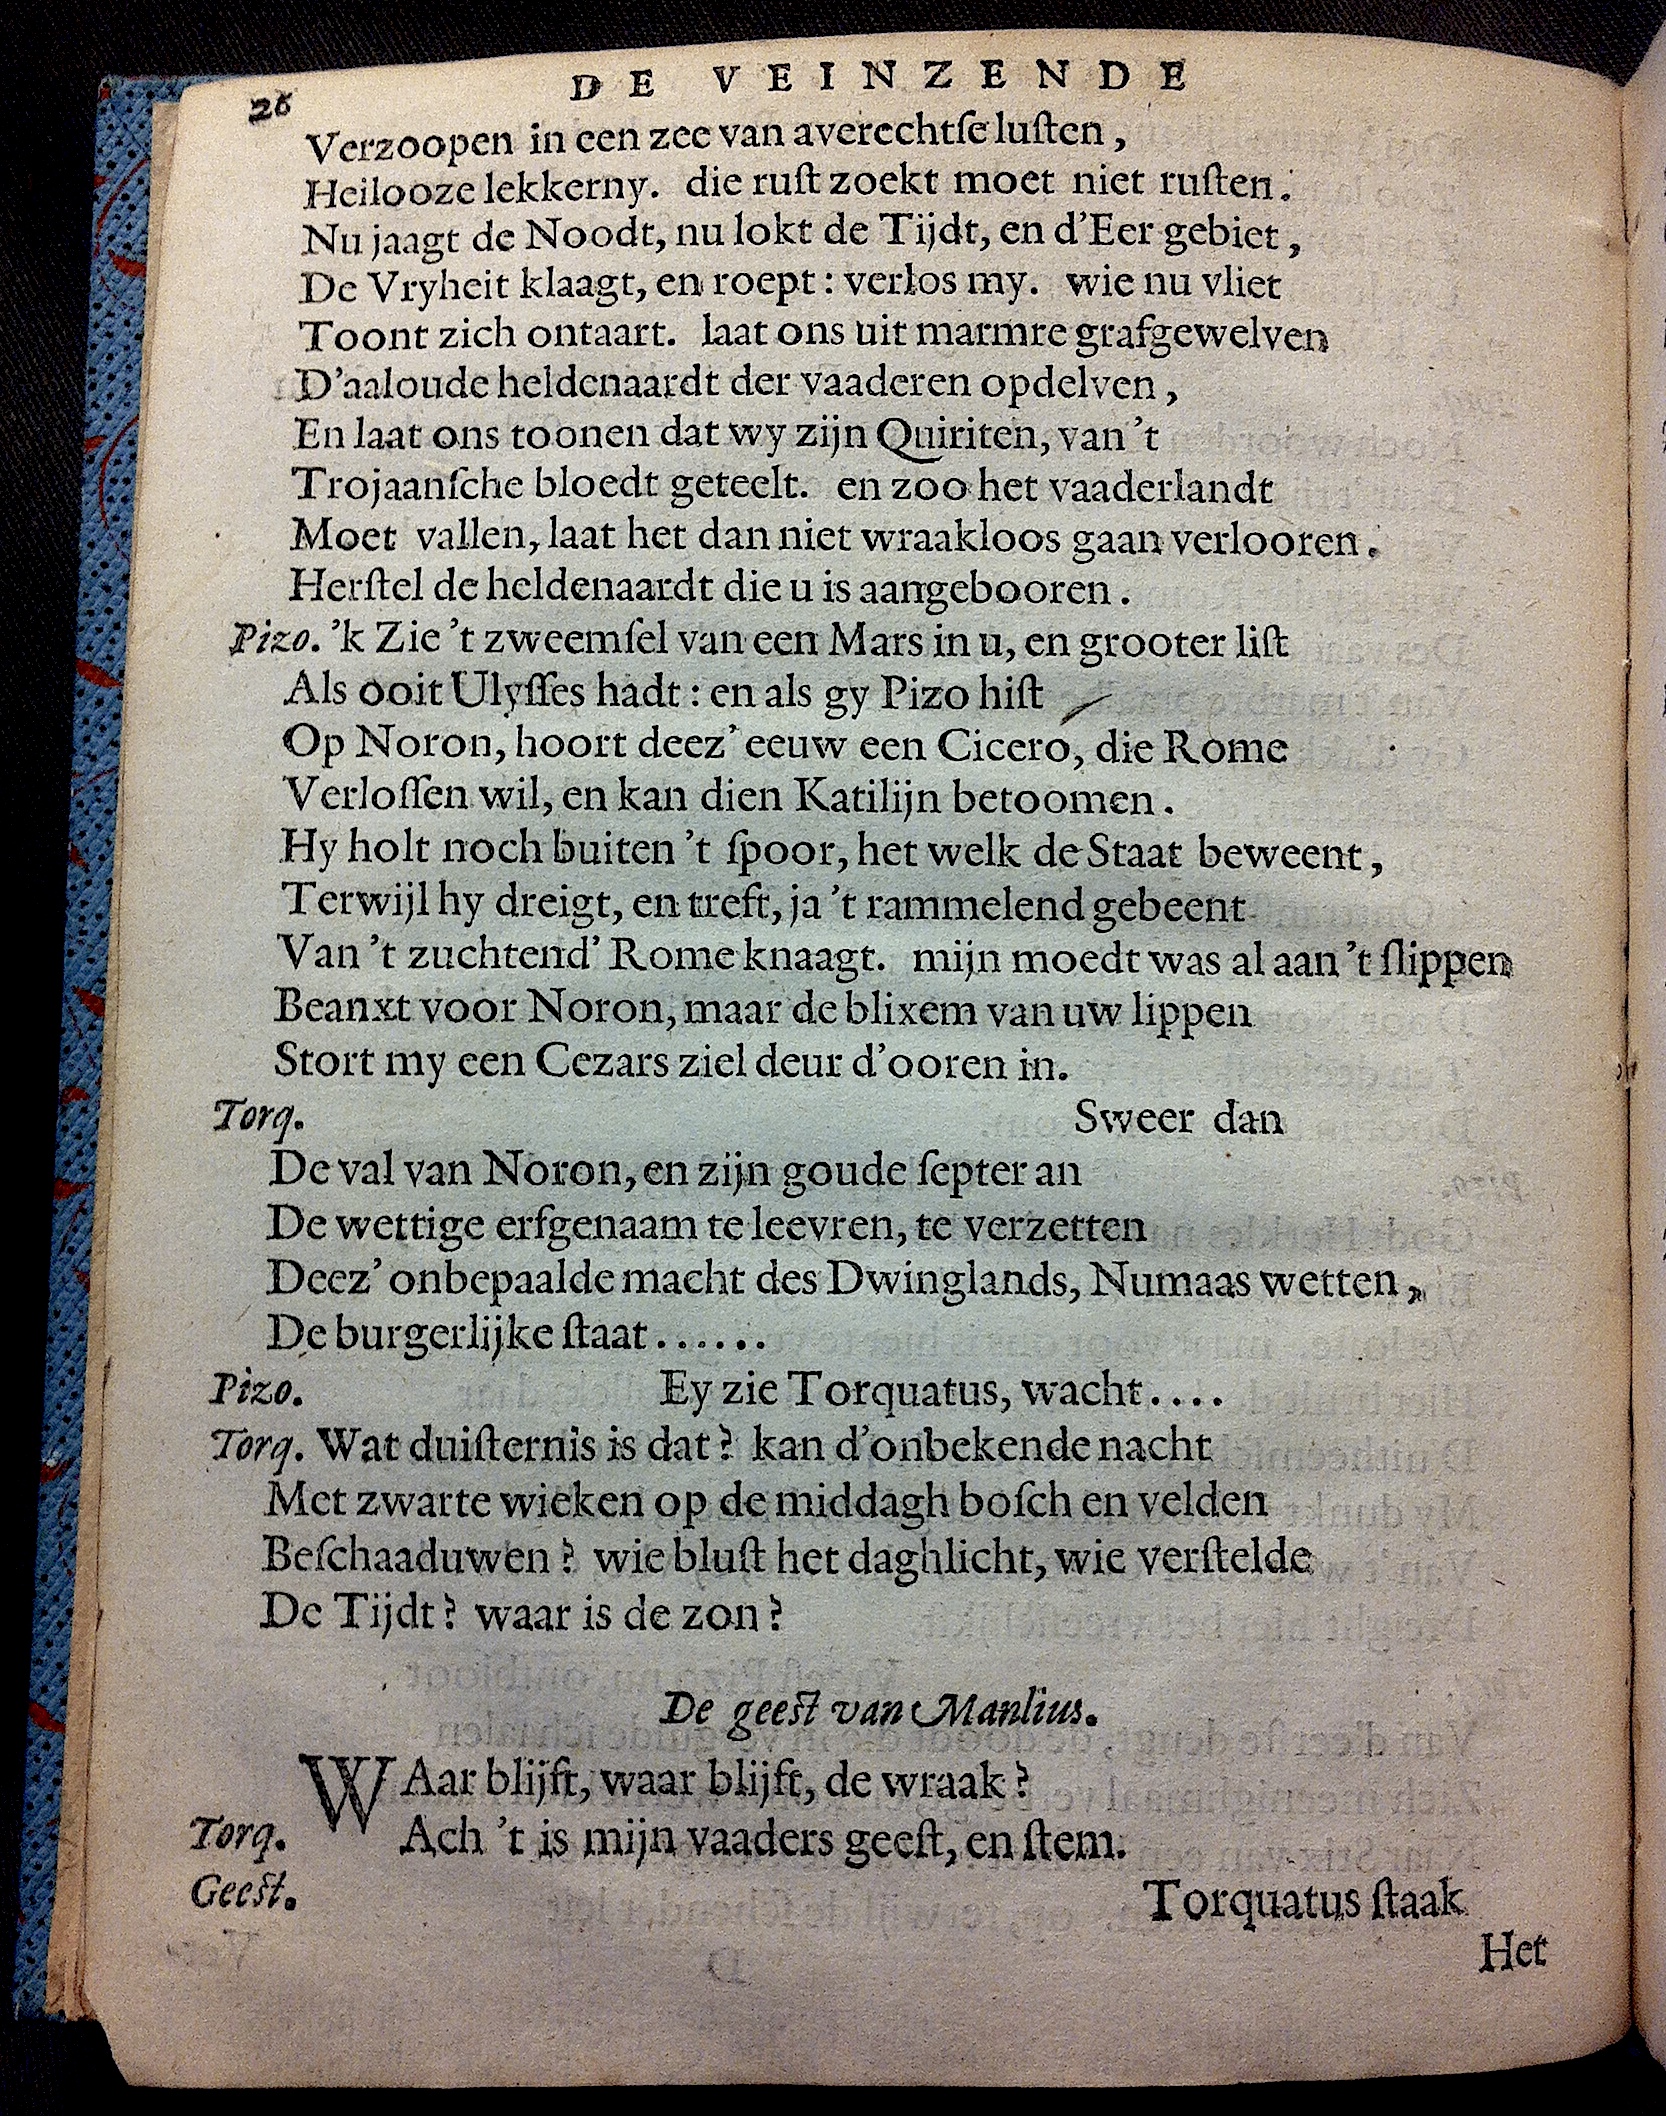 26 DE VEINZENDE
Verzoopen in een zee van averechtſe luſten,
Heilooze lekkerny. die ruſt zoekt moet niet ruſten.
Nu jaagt de Noodt, nu lokt de Tijdt, en d'Eer gebiet,
De Vryheit klaagt, en roept: verlos my. wie nu vliet
Toont zich ontaart. laat ons uit marmre grafgewelven
D'aaloude heldenaardt der vaaderen opdelven,
En laat ons toonen dat wy zijn Quiriten, van 't
Trojaanſche bloedt geteelt. en zoo het vaaderlandt
Moet vallen, laat het dan niet wraakloos gaan verlooren.
Herſtel de heldenaardt die u is aangebooren.
Pizo. 'k Zie 't zweemſel van een Mars in u, en grooter liſt
Als ooit Ulyſſes hadt: en als gy Pizo hiſt
Op Noron, hoort deez' eeuw een Cicero, die Rome
Verloſſen wil, en kan dien Katilijn betoomen.
Hy holt noch buiten 't ſpoor, het welk de Staat beweent,
Terwijl hy dreigt, en treft, ja 't rammelend gebeent
Van 't zuchtend' Rome knaagt. mijn moedt was al aan 't ſlippen
Beanxt voor Noron, maar de blixem van uw lippen
Stort my een Cezars ziel deur d'ooren in.
Torq. Sweer dan
De val van Noron, en zijn goude ſepter an
De wettige erfgenaam te leevren, te verzetten
Deez' onbepaalde macht des Dwinglands, Numaas wetten,
De burgerlijke ſtaat......
Pizo. Ey zie Torquatus, wacht....
Torq. Wat duiſternis is dat? kan d'onbekende nacht
Met zwarte wieken op de middagh boſch en velden
Beſchaaduwen? wie bluſt het daghlicht, wie verſtelde
De Tijdt? waar is de zon?
De geeſt van Manlius.
WAar blijft, waar blijft, de wraak?
Torq. Ach 't is mijn vaaders geeſt, en ſtem.
Geeſt. Torquatus ſtaak
Het